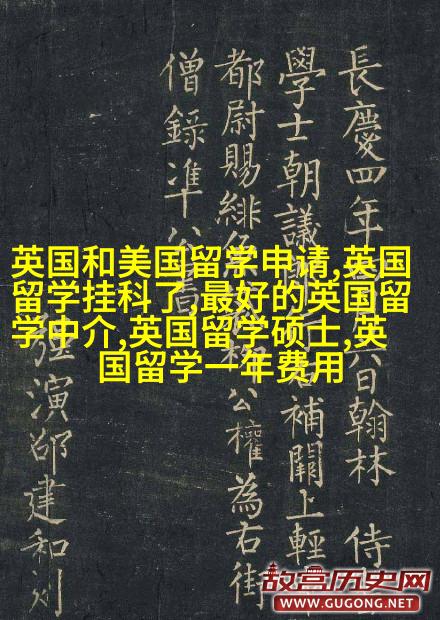 長慶四年六日翰林 侍
學士朝議補闕上輕
都尉賜緋公權為右街
僧錄准公書
强演邵建和刻
英国和美国留学申请,英国
留学挂科了,最好的英国留
学中介,英国留学硕士,英
国留学一年费用
故宫历史网
WWW.GUGONG.NET